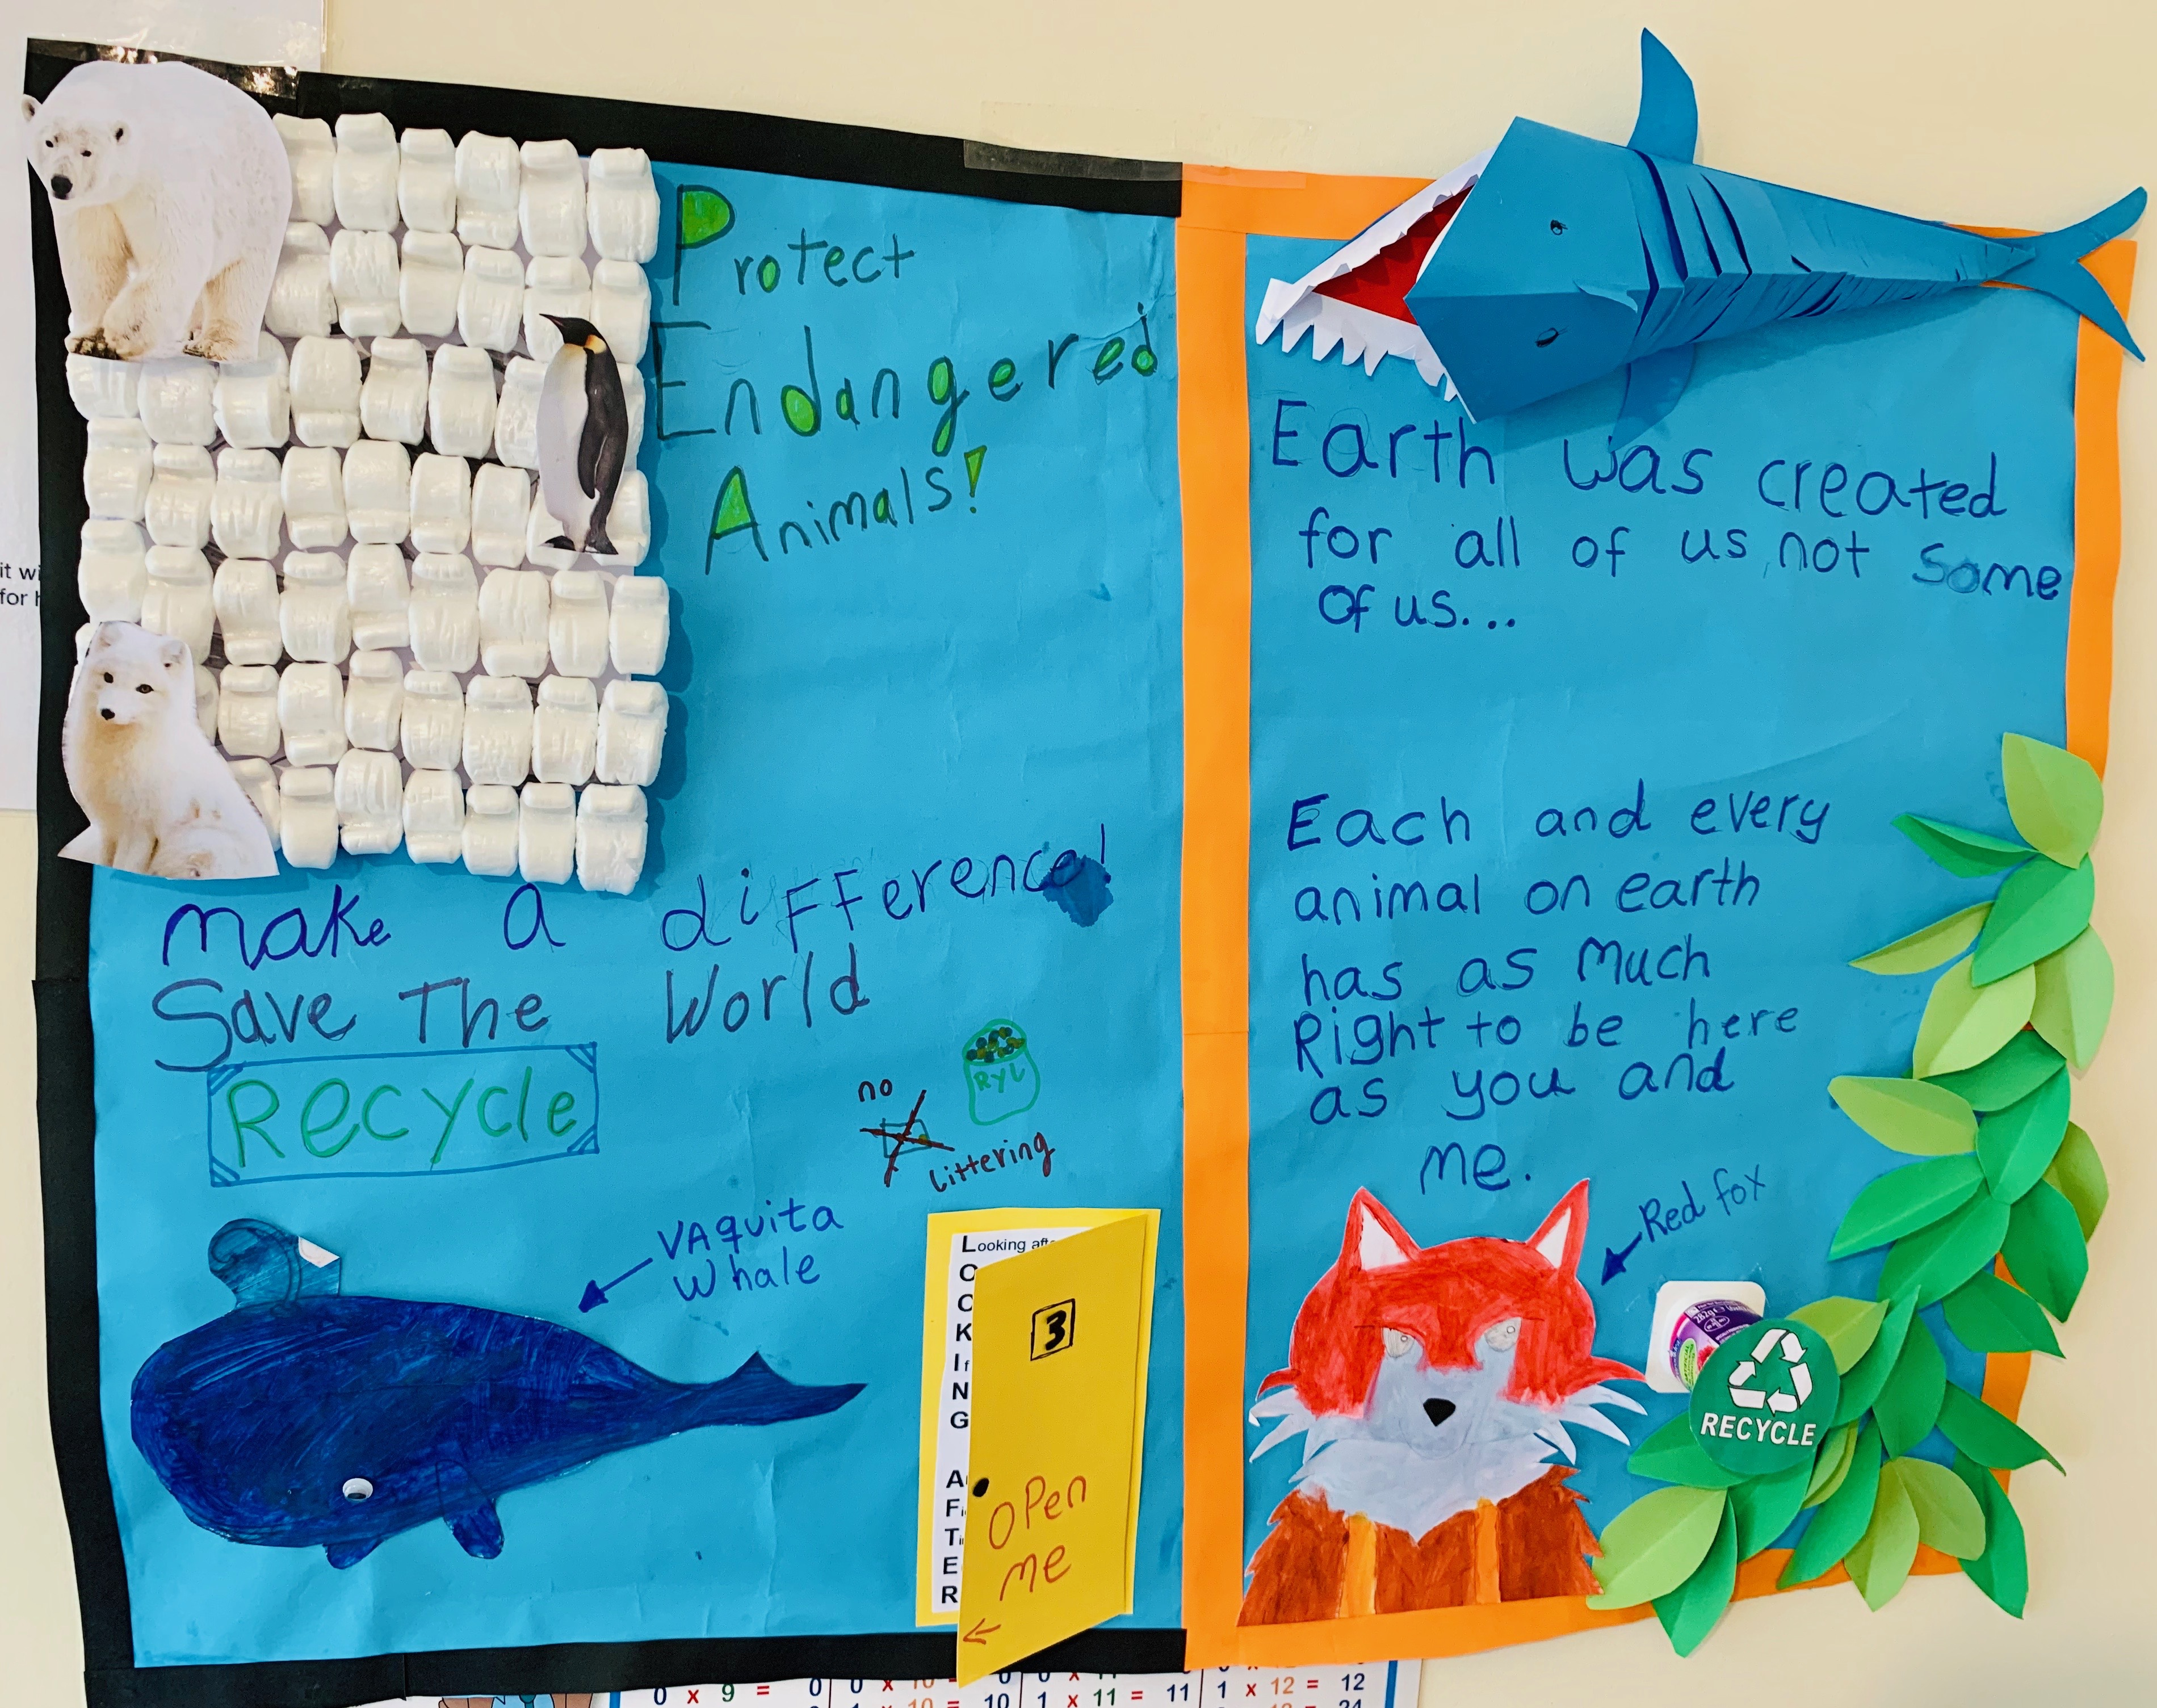 Protect
Endangered
Animals!
make a difference!
Save The World
Recycle
no
RYL
littering
VAquita
Whale
Looking
O
O
K
If
N
G
A
F
T
E
R
3
OPen
me
Earth was created
for all of us, not some
of us...
Each and every
animal on earth
has as much
Right to be here
as you and
me.
Red fox
RECYCLE
it
for
0 x 9 = 0
10 = 10
1 x 11 = 11
1 x 12 = 12